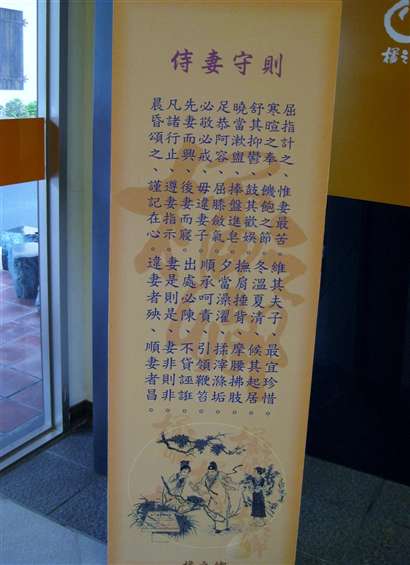 侍妻守則
屈指計之、惟妻最苦。維其夫子、最宜珍惜。
寒暄之奉、饑飽之節。冬溫夏清、候其起居。
舒其抑鬱、鼓其歡娛。撫肩捶背、摩腰拂肢。
曉當漱盥、捧盤進皂。夕當澡濯、揉滓滌垢。
足恭阿容、屈膝斂氣。順承呵責、引領鞭笞。
必敬必戒、毋違妻子。
先妻而興、後妻而寢。出處必陳、不貸誣誑。
凡諸行止、遵妻指示。妻是則是、妻非則非。
晨昏頌之、謹記在心。違妻者殃、順妻者昌。